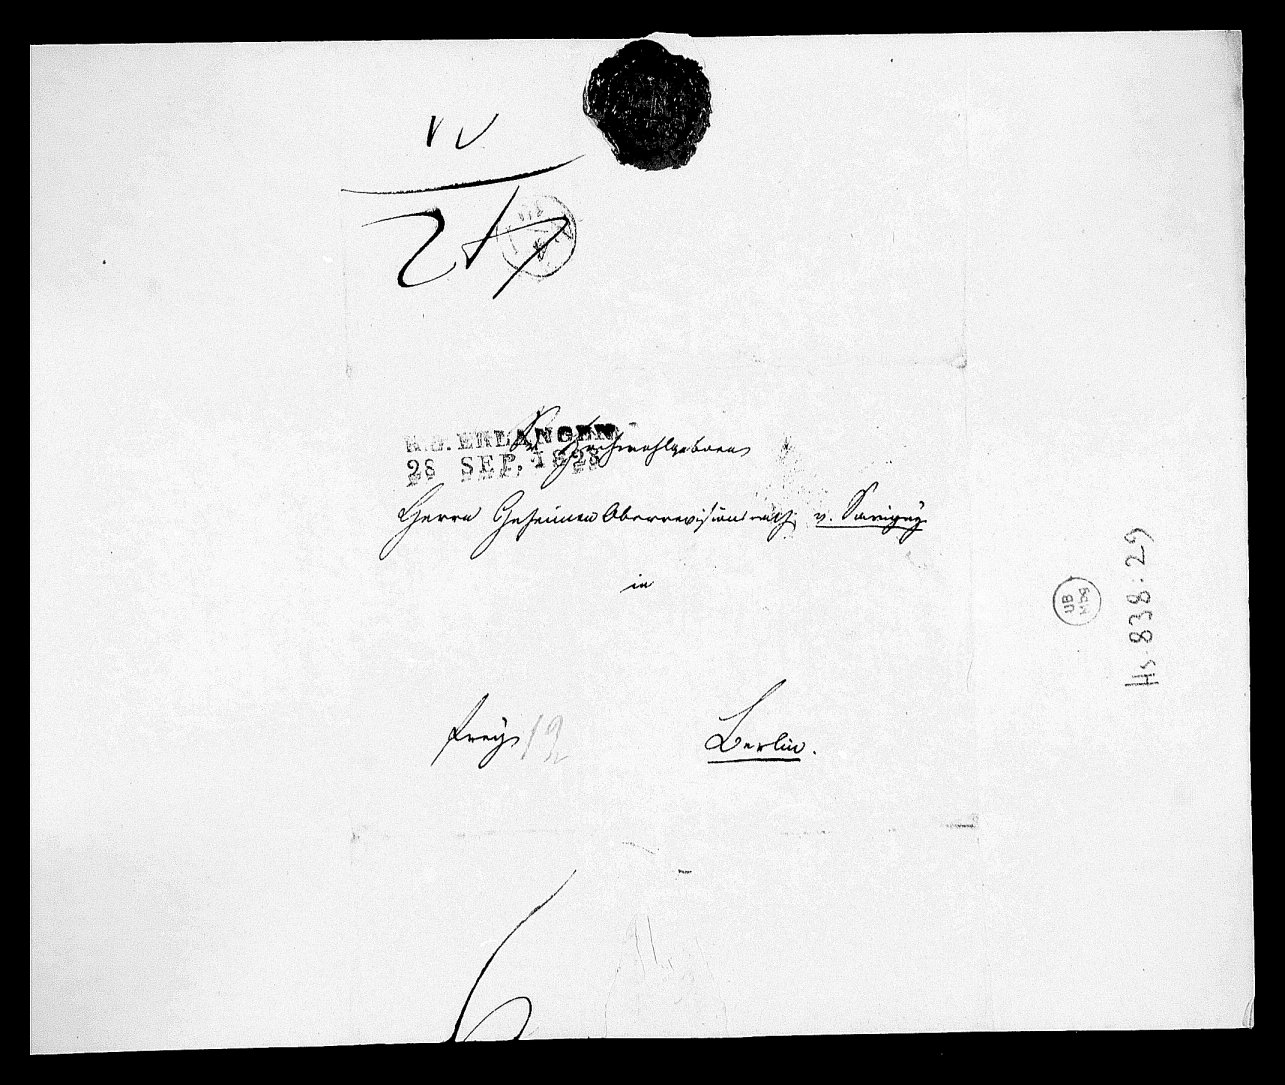 R.B. ERLANGEN
28 SEP. 1828
Sr Hochwohlgeboren
Herrn Geheimen Oberrevisionsrath v. Savigny
in
frey
Berlin.
UB
Mbg
Hs 838:29